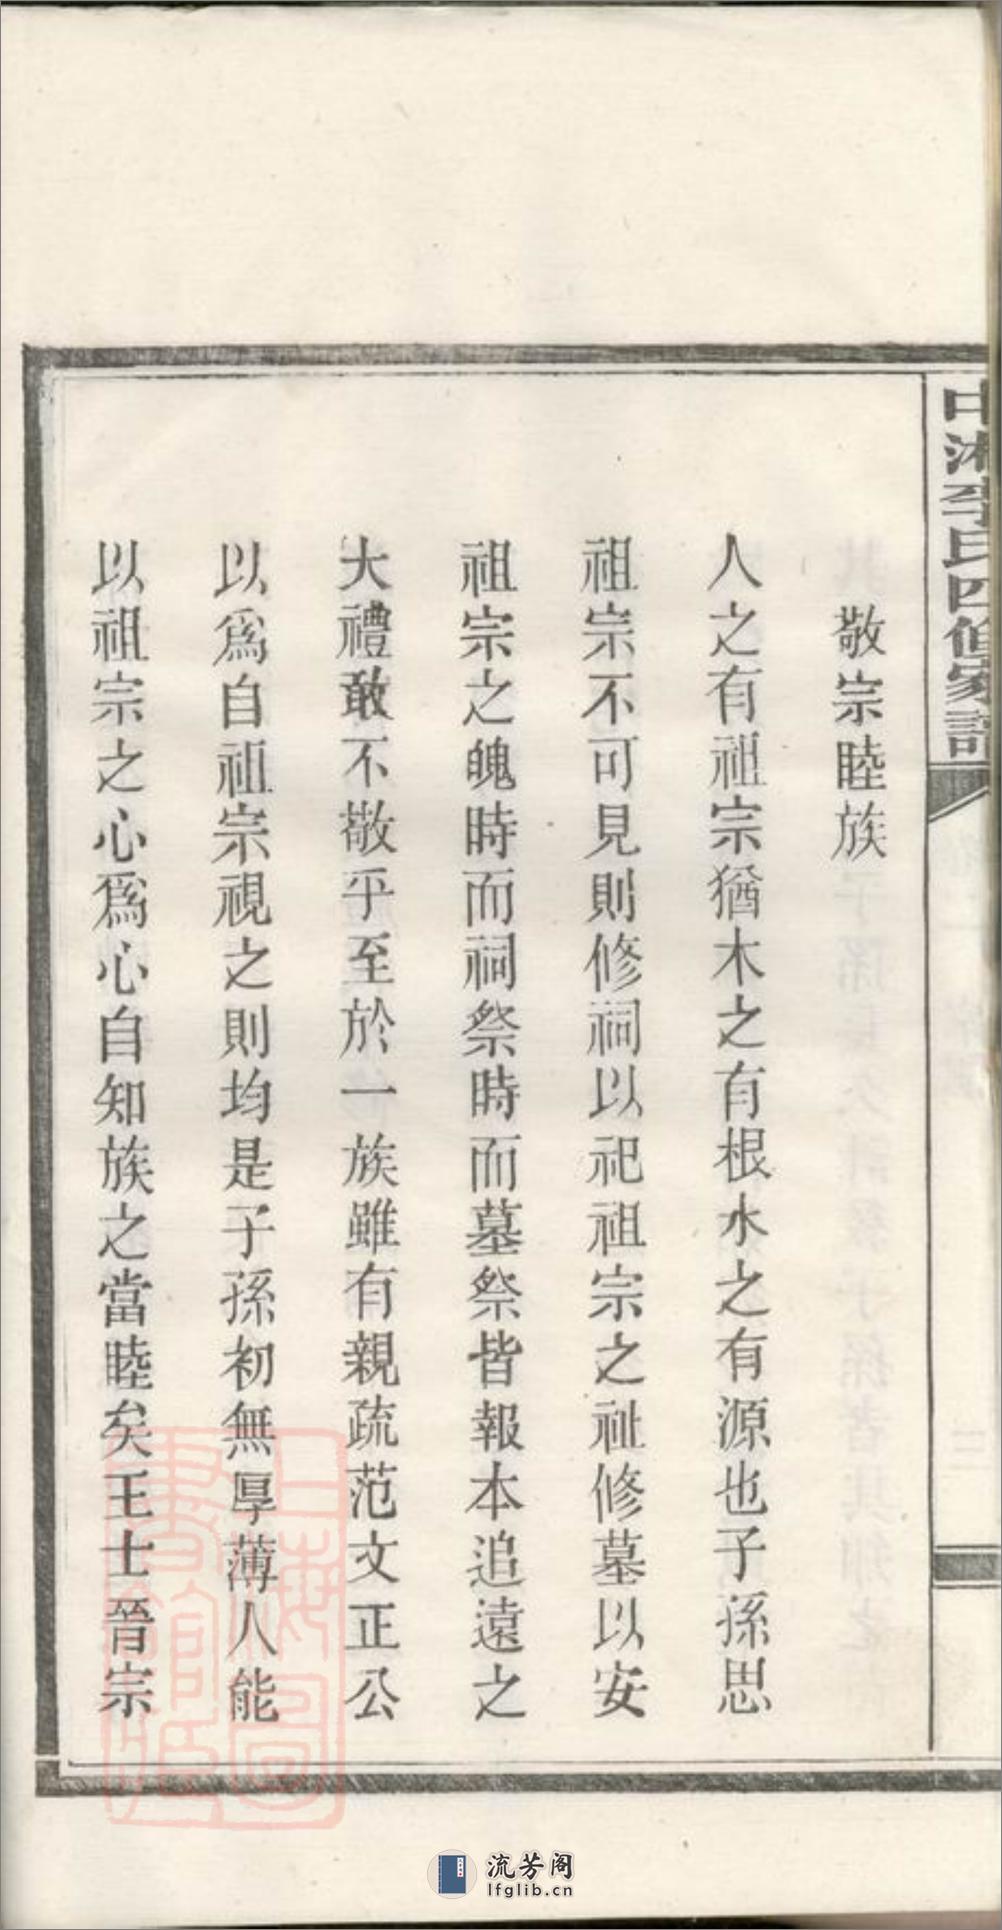 中湘李氏四修家譜
敬宗睦族
人之有祖宗猶木之有根水之有源也子孫思
祖宗不可見則修祠以祀祖宗之祉修墓以安
祖宗之魄時而祠祭時而墓祭皆報本追遠之
大禮敢不敬乎至於一族雖有親疏范文正公
以爲自祖宗視之則均是子孫初無厚薄人能
以祖宗之心爲心自知族之當睦矣王士晉宗
上海圖書館藏
流芳阁
lfglib.cn